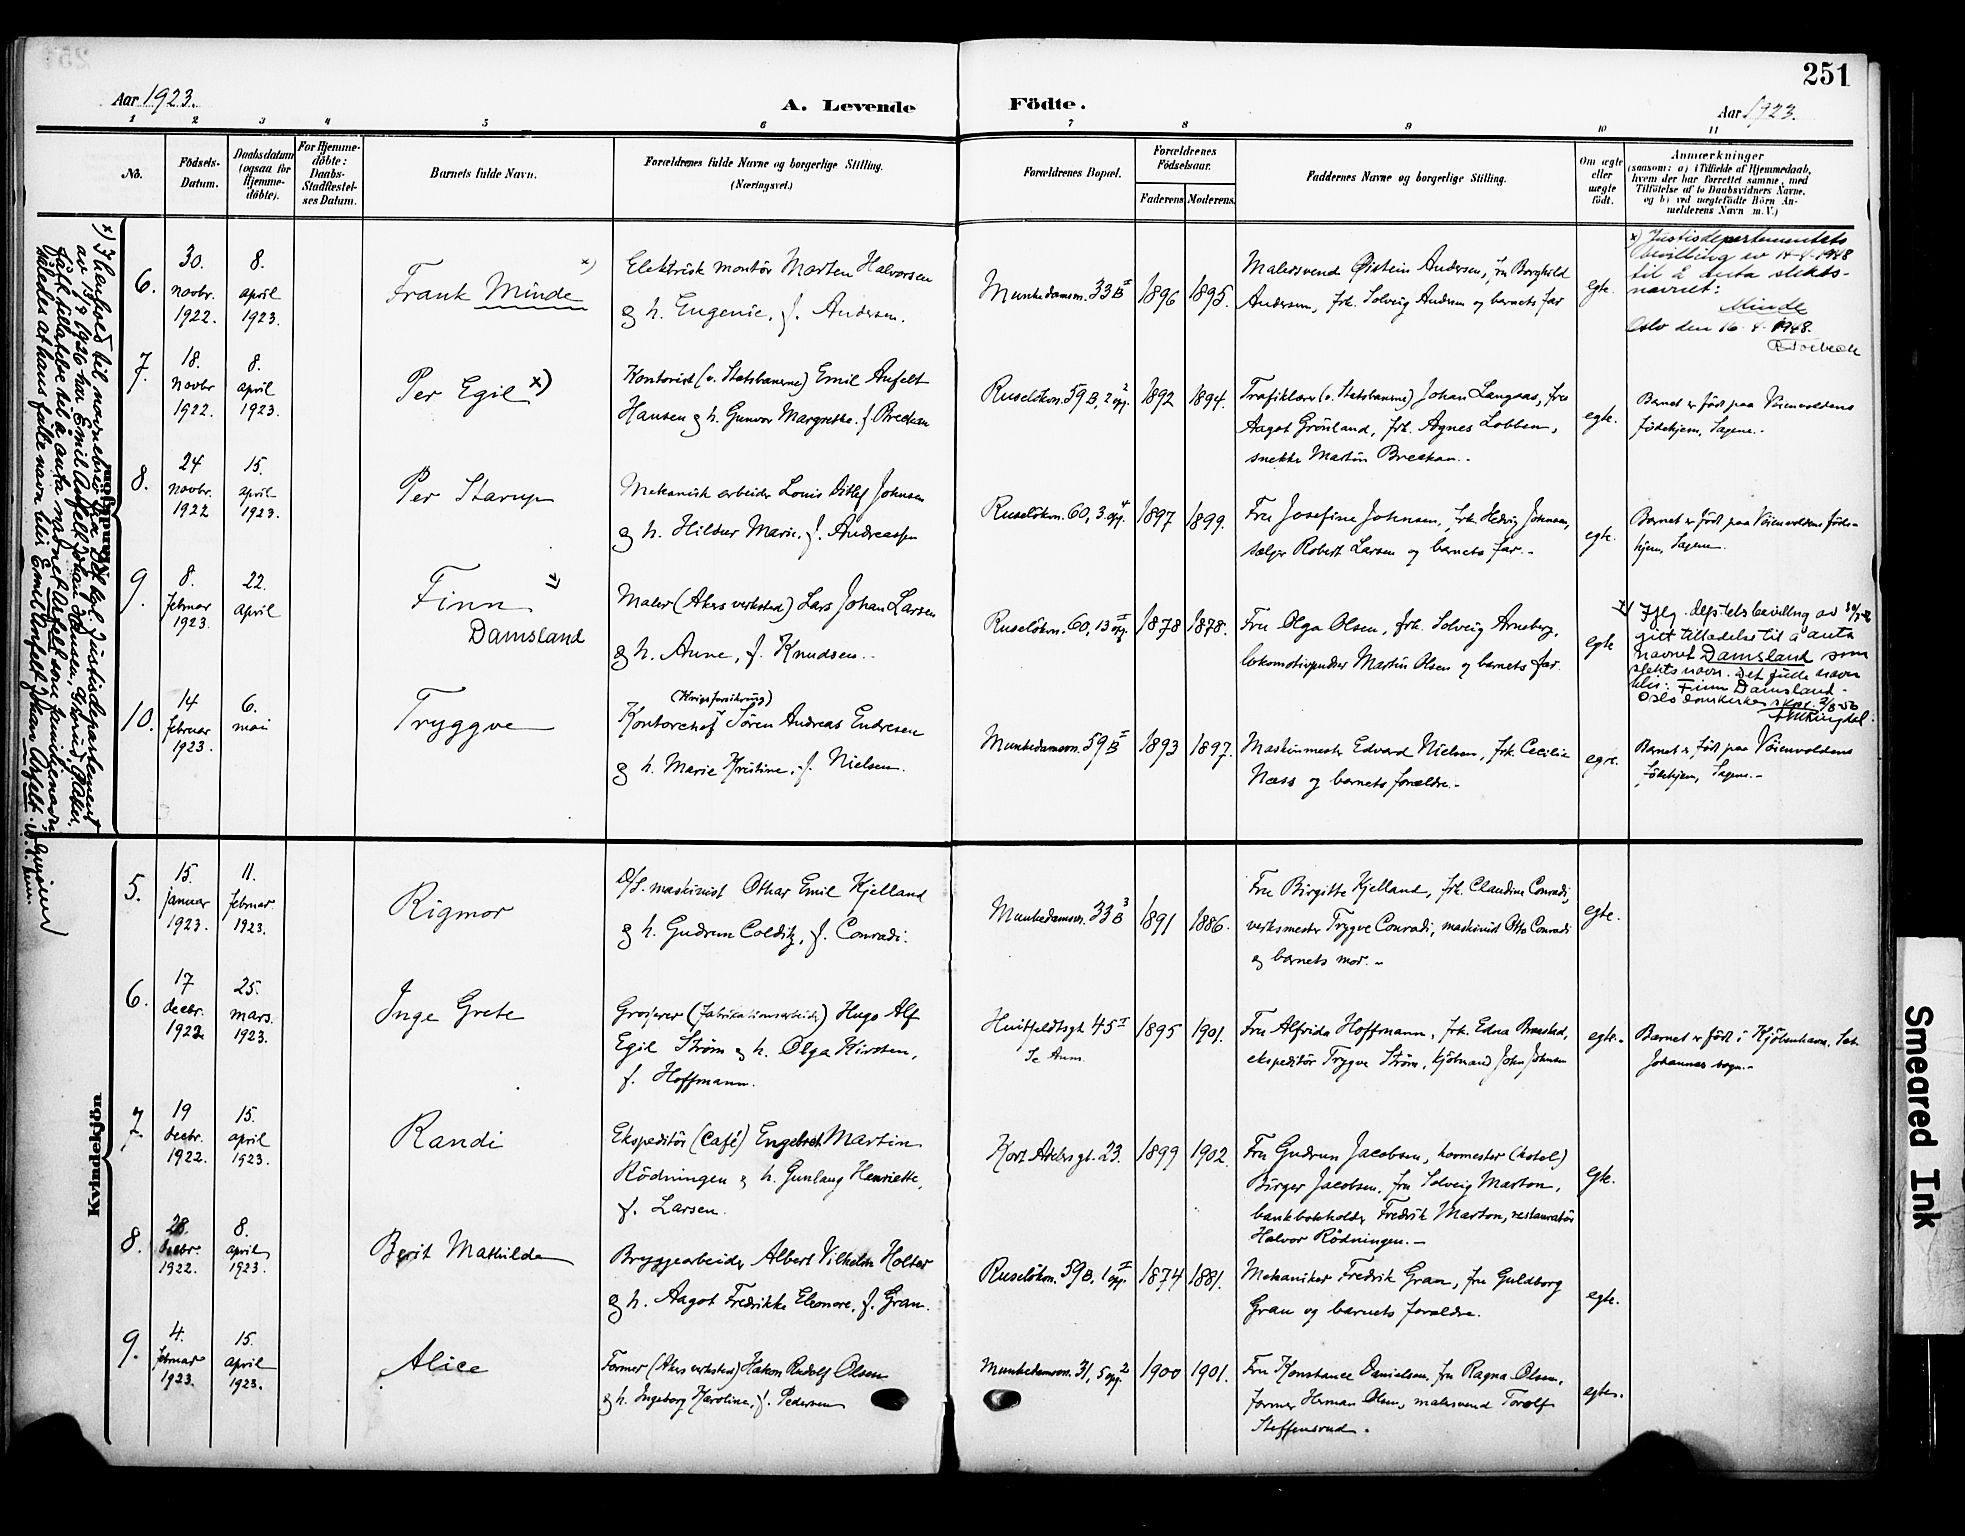 251
Aar 1923.
A. Levende
Födte.
Aar 1923.
1 2 3 4 5 6 7 8 9 10 11
No.
Födsels-
Datum.
Daabsdatum
(ogsaa for
Hjemme-
döbte).
For Hjemme-
döbte:
Daabs-
Stadfæstel-
ses Datum.
Barnets fulde Navn.
Forældrenes fulde Navne og borgerlige Stilling.
(Næringsvei.)
Forældrenes Bopæl.
Forældrenes
Födselsaar.
Faderens Moderens.
Faddernes Navne og borgerlige Stilling.
Om ægte
eller
uægte
födt.
Anmærkninger
(saasom: a) i Tilfælde af Hjemmedaab,
hvem der har forrettet samme, med
Tilföielse af to Daabsvidners Navne,
og b) ved uægtefödte Börn An-
melderens Navn m. V.)
6.
30.
novbr.
1922.
8.
april
1923.
Frank Minde x)
Elektrisk montör Marten Halvorsen
og h. Eugenie, f. Andersen.
Munkedamsvn. 33 B I
1896 1895.
Malersvend Øistein Andersen, fru Borghild
Andersen, frk. Solveig Andersen og barnets far
egte.
x) Justisdepartementets
bevilling av
til å anta slekts-
navnet:
Minde
Oslo den 16
7.
18.
novbr
1922.
8.
april
1923.
Per Egil x)
Kontorist (v. Statsbanerne) Emil Anfelt
Hansen og h. Gunvor Margrethe, f. Breckan
Ruselökvn. 59 B, 2 opg. 2
1892 1894.
(v. Statsbanerne) Johan Langaas, fru
Aagot Grönland, frk. Agnes Lobben,
snekker Martin Breckan.-
egte.
Barnet er født paa Vöienvoldens
födehjem, Sagene.-
8.
24
novbr.
1922
15.
april
1923.
Per Starup
Mekanisk arbeider Louis Ditlef Johnsen
og h. Hildur Marie, f. Andreassen
Ruselökvn. 60, 3. opg. 4
1897 1899.
Fru Josefine Johnsen, frk. Hedvig Johnsen,
selger Robert Larsen og barnets far.-
egte.
Barnet er født paa Vöienvoldens föde-
hjem, Sagene.
9.
8.
februar
1923.
22.
april
Finn
Damsland
Maler (Akers verksted) Lars Johan Larsen
og h. Anne, f. Knudsen.-
Ruselökvn. 60, 13 opg. I
1878 1878.
Fru Olga Olsen, frk. Solveig Arneberg,
lokomotivpudser Martin Olsen og barnets far.
egte
gitt tilladelse til å anta
navnet Damsland som
slektsnavn. Det fulde navn
blir: Finn Damsland.
Oslo domkirkes
10.
14
februar
1923.
6.
mai
Tryggve
(Krigsforsikring)
Kontorchef Sören Andreas Endresen
og h. Marie Kristine, f. Nielsen.
Munkedamsvn. 59 B I
1893 1897.
Maskinmester Edvard Nielsen, frk. Cecilie
Næss og barnets forældre.-
egte.
Barnet er født paa Vöienvoldens
födehjem, Sagene.-
x) I henhold til navnebevis fra Det kgl. Justisdepartement
av 13/9 1926 har Emil Anfelt Johan
fått tillatelse til å anta navnet Asfelt som familienavn,
således at hans fulle navn blir Emil Anfelt Johan Asfelt.
5.
15.
januar
1923.
11.
februar.
1923.
Rigmor
D/S. maskinist Othar Emil Kjelland
og h. Gudrun Colditz, f. Conradi.
Munkedamsvn. 33 B 3
1891 1886.
Fru Birgitte Kjelland, frk. Claudine Conradi,
verksmester Trygve Conradi, maskinist Otto Conradi
og barnets mor.-
egte.
6.
17
decbr.
1922
25.
mars.
1923.
Inge Grete
Grosserer (Fabrikationsarbeide) Hugo Alf
Egil Strøm og h. Olga Kirsten,
f. Hoffmann.
Huitfeldtsgt. 45 I
Se Anm.
1895 1901.
Fru Alfrida Hoffmann, frk. Edna Brønsted,
ekspeditör Trygve Strøm, kjöbmand John Johnsen
egte.
Barnet er født i Kjöbenhavn. Set.
Johannes sogn.-
Kvindekjön
7.
19
decbr.
1922.
15.
april
1923.
Randi
Ekspeditör (Café) Engebret Martin
Rödningen og h. Gunlaug Henriette,
f. Larsen.
Kort Adelersgt. 23.
1899 1902.
Fru Gudrun Jacobsen, hovmester (hotel)
Birger Jacobsen, fru Solveig Marton,
bankbokholder Fredrik Marton, restauratör
Halvor Rödningen.-
egte.
8.
28.
decbr.
1922.
8.
april
1923.
Berit Mathilde
Bryggearbeider Albert Vilhelm Holter
og h. Aagot Fredrikke Eleonore, f. Gran.
Ruselökvn. 59 B, 1 opg. I
1874 1881.
Mekaniker Fredrik Gran, fru Guldborg
Gran og barnets forældre.
egte.
9.
4.
februar
1923.
15.
april
1923.
Alice
Former (Akers verksted) Hakon Rudolf Olsen
og h. Ingeborg Karoline, f. Pedersen
Munkedamsvn. 31, 5 opg. 2
1900 1901.
Fru Konstance Danielsen, fru Ragna Olsen,
former Herman Olsen, malersvend Torolf
Steffensrud.
egte.
Smeared Ink